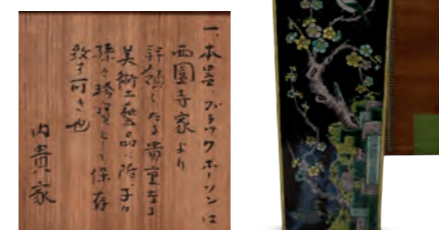 一、本器ブラックホーソンは
西園寺家より
拝領したる貴重なる
美術工藝品に付、子々
孫々珍寳として保存
致す可き也
内貴家